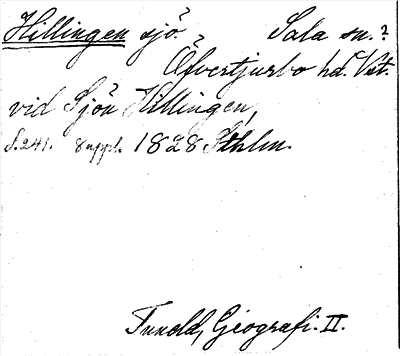 Hillingen sjö? Sala sn.?
Öfvertjurbo hd. Vst.
vid Sjön Hillingen,
S. 241. 8 uppl. 1828 Sthlm.
Tuneld, Geografi. II.